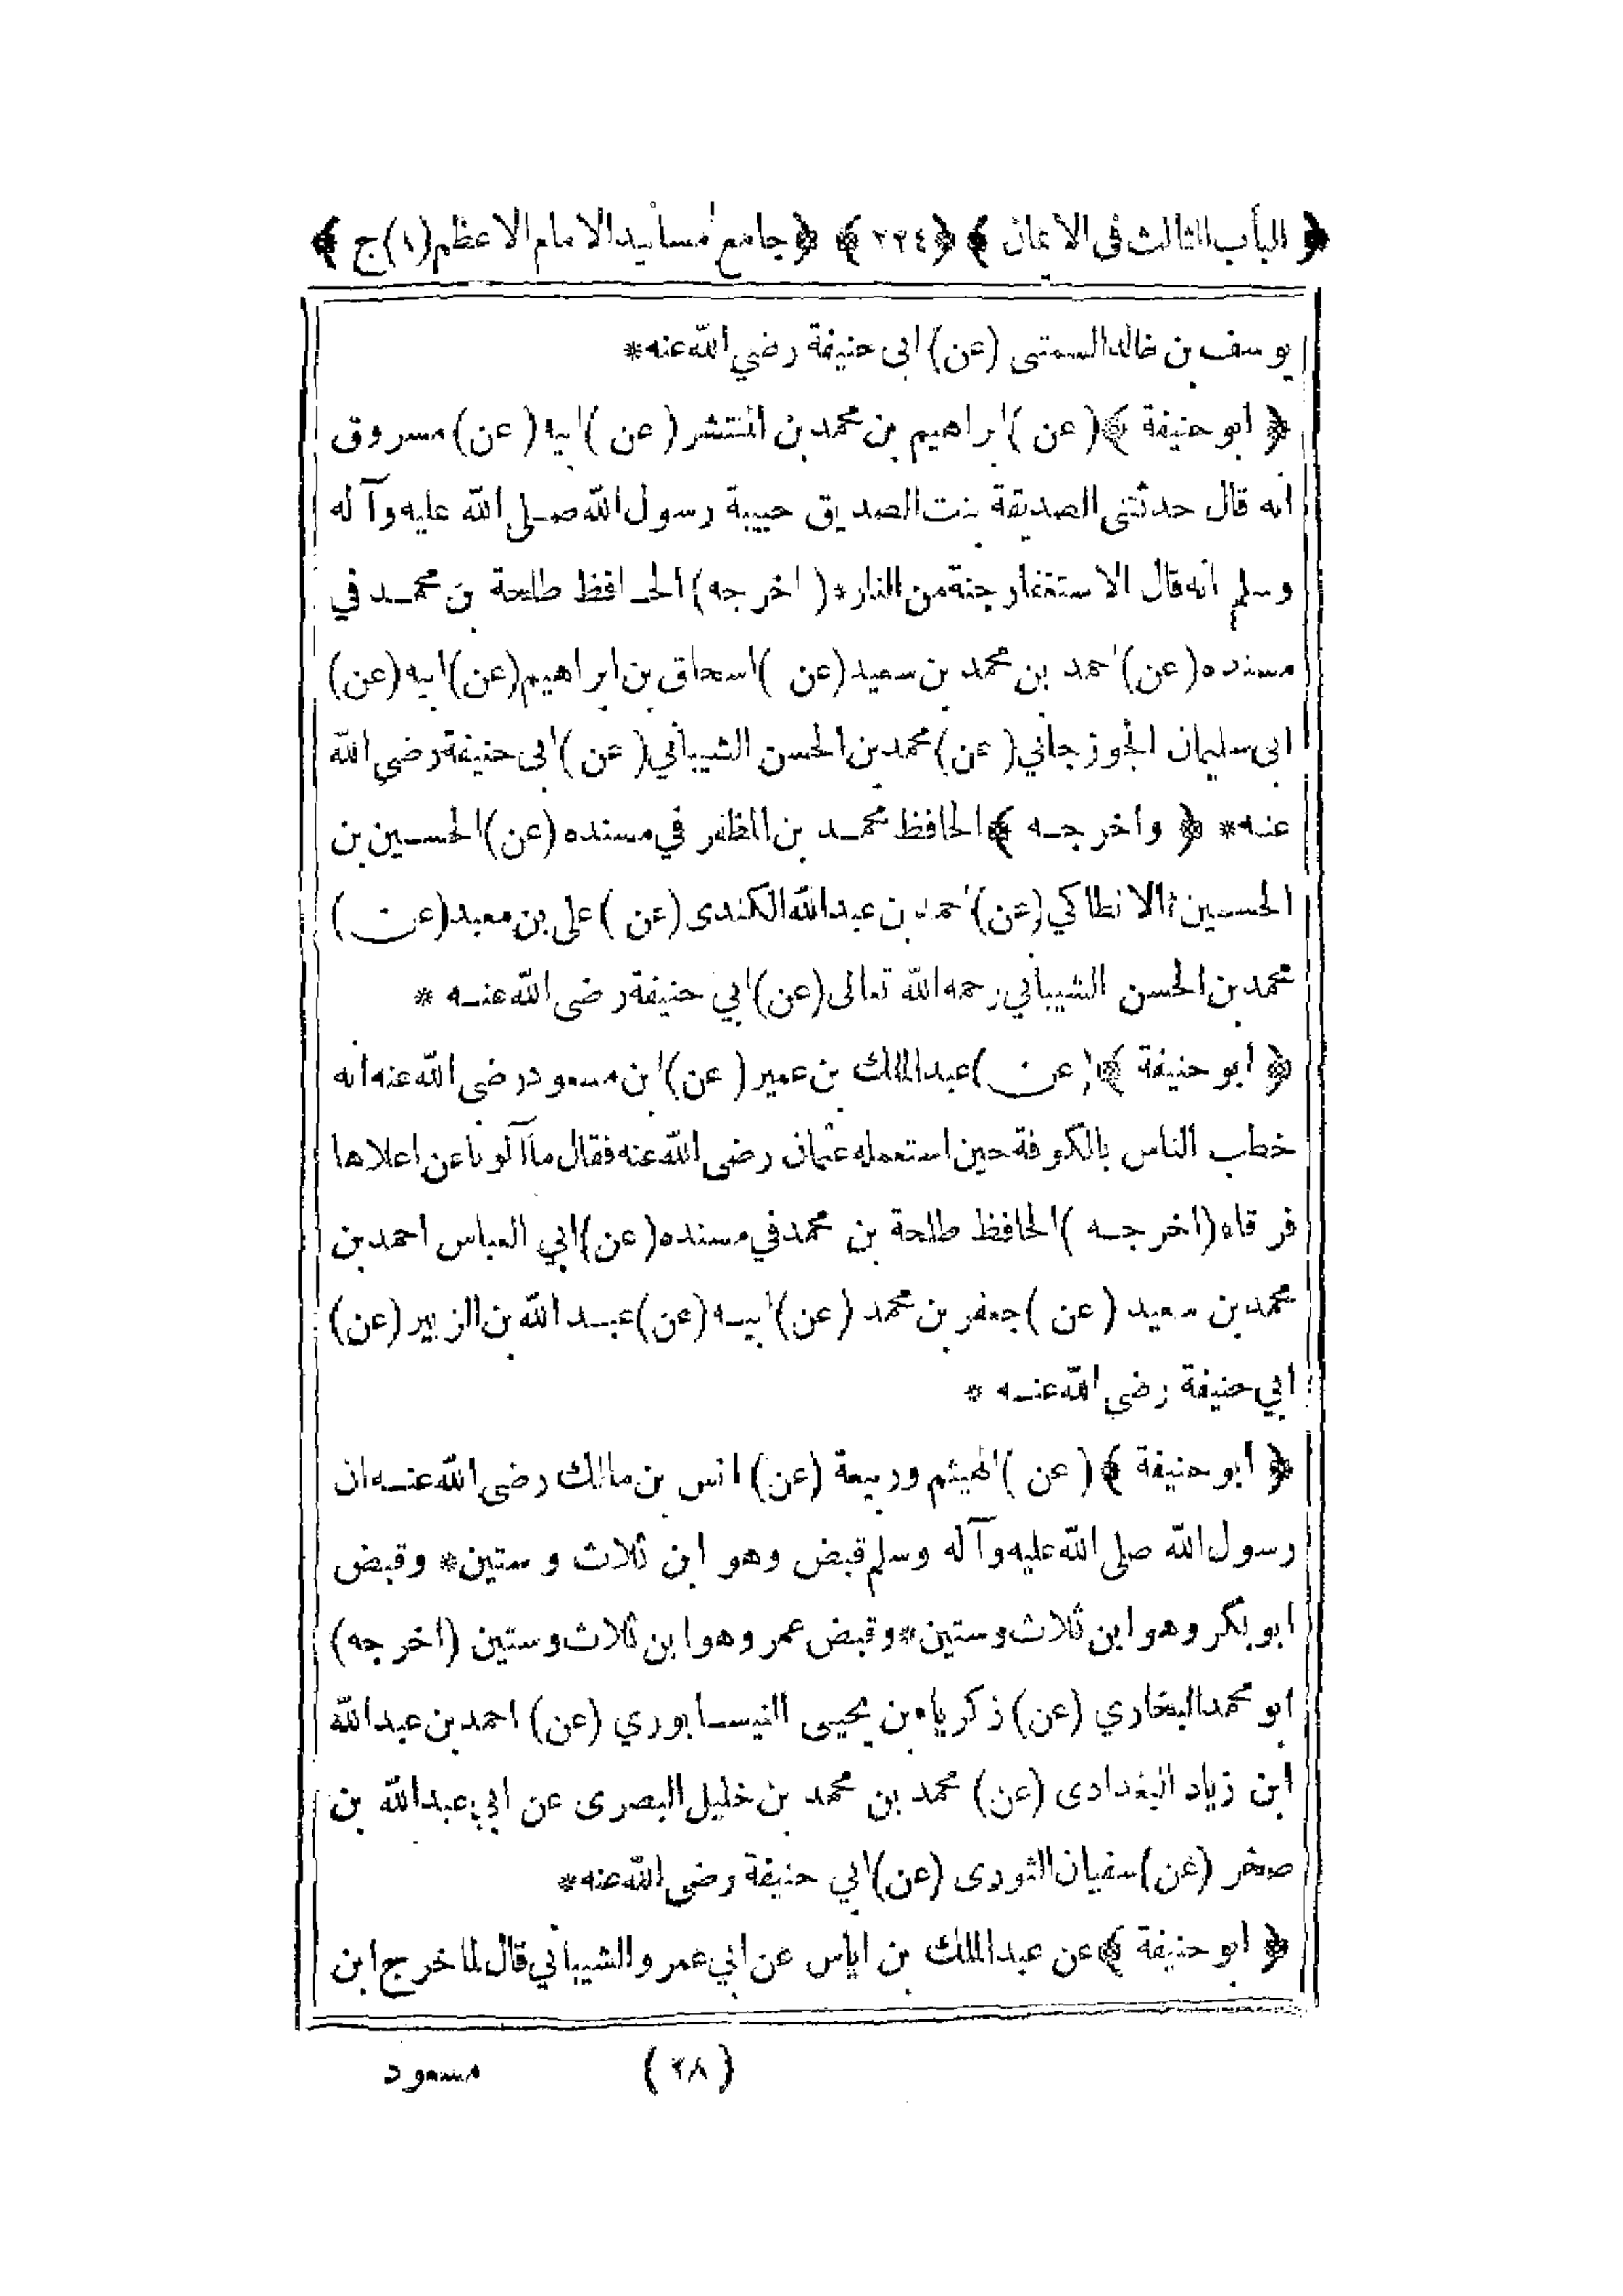 ﴿ الباب الثالث فى الايمان ﴾ ﴿٢٢٤﴾ ﴿ جامع مسانيد الامام الاعظم (١) ج ﴾
يوسف بن خالد السمتى (عن) ابى حنيفة رضي الله عنه*
﴿ ابو حنيفة ﴾ (عن) ابراهيم بن محمد بن المنتشر (عن) ابيه (عن) مسروق
انه قال حدثتنى الصديقة بنت الصديق حبيبة رسول الله صلى الله عليه وآله
وسلم انه قال الاستغفار جنة من النار* (اخرجه) الحافظ طلحة بن محمد في
مسنده (عن) احمد بن محمد بن سعيد (عن) اسحاق بن ابراهيم (عن) ابيه (عن)
ابى سليمان الجوزجاني (عن) محمد بن الحسن الشيباني (عن) ابى حنيفة رضي الله
عنه* ﴿ واخرجه ﴾ الحافظ محمد بن المظفر في مسنده (عن) الحسين بن
الحسين الانطاكي (عن) احمد بن عبد الله الكندى (عن) على بن معبد (عن)
محمد بن الحسن الشيباني رحمه الله تعالى (عن) ابي حنيفة رضى الله عنه *
﴿ ابو حنيفة ﴾ (عن) عبد الملك بن عمير (عن) ابن مسعود رضى الله عنه انه
خطب الناس بالكوفة حين استعمله عثمان رضى الله عنه فقال ماآلونا عن اعلاها
فرقاه (اخرجه) الحافظ طلحة بن محمد في مسنده (عن) ابي العباس احمد بن
محمد بن سعيد (عن) جعفر بن محمد (عن) ابيه (عن) عبد الله بن الزبير (عن)
ابي حنيفة رضى الله عنه *
﴿ ابو حنيفة ﴾ (عن) الهيثم وربيعة (عن) انس بن مالك رضى الله عنه ان
رسول الله صلى الله عليه وآله وسلم قبض وهو ابن ثلاث وستين* وقبض
ابو بكر وهو ابن ثلاث وستين* وقبض عمر وهو ابن ثلاث وستين (اخرجه)
ابو محمد البخاري (عن) زكرياء بن يحيى النيسابوري (عن) احمد بن عبد الله
ابن زياد البغدادى (عن) محمد بن محمد بن خليل البصرى عن ابي عبد الله بن
صخر (عن) سفيان الثورى (عن) ابي حنيفة رضى الله عنه*
﴿ ابو حنيفة ﴾ عن عبد الملك بن اياس عن ابي عمرو الشيباني قال لما خرج ابن
(٢٨) مسعود